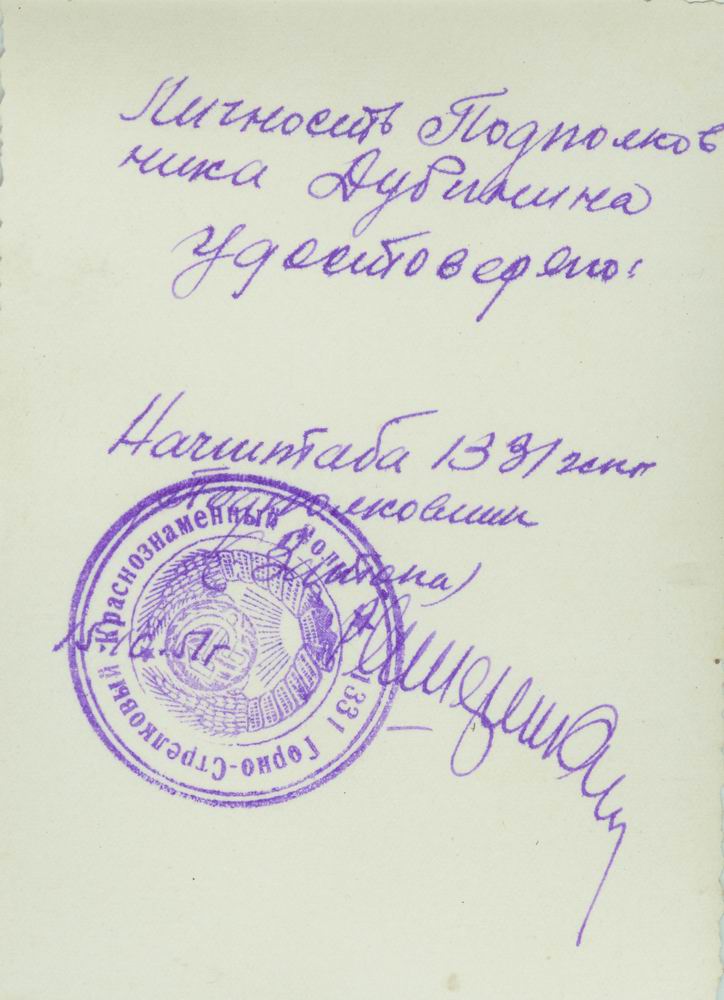 Личность Подполков
ника Дубинина
удостоверяю:
Начштаба 1331 гсп
Подполковник
1331 Горно-Стрелковый Краснознаменный полк